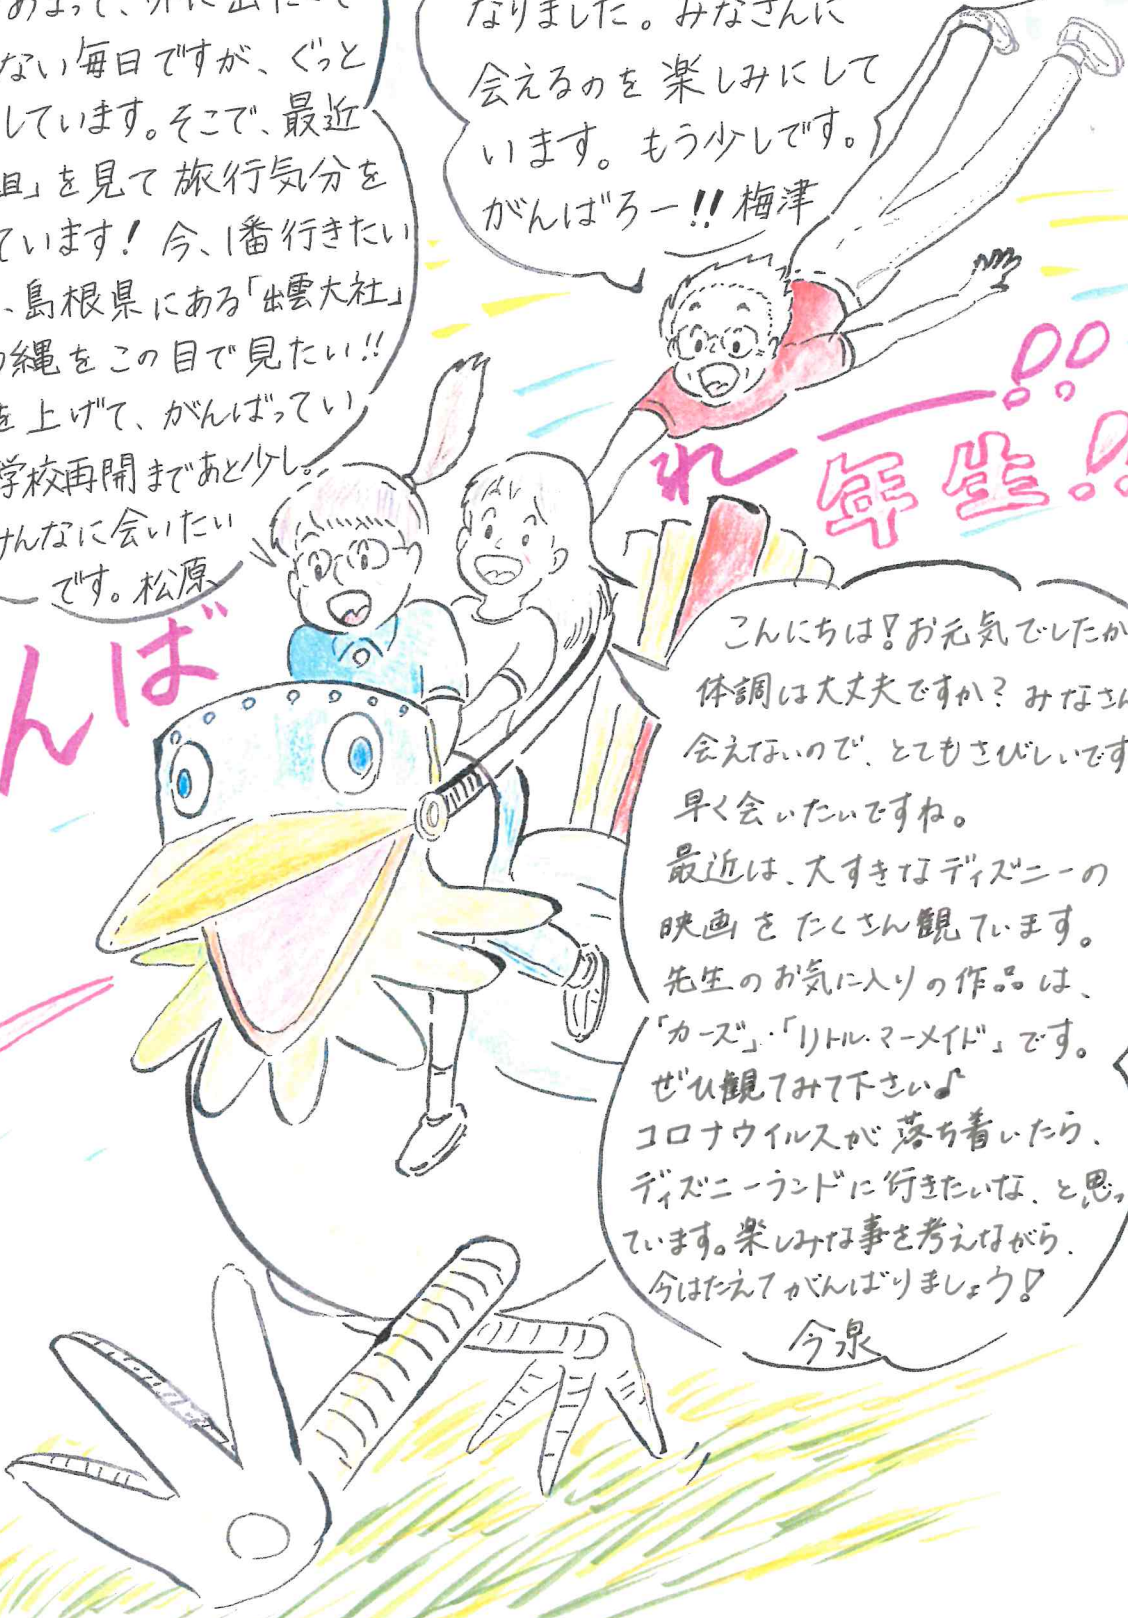 ない毎日ですが、ぐっと
しています。そこで、最近
」を見て旅行気分を
ています！今、1番行きたい
、島根県にある「出雲大社」
縄をこの目で見たい!!
を上げて、がんばってい
学校再開まであと少し。
んなに会いたい
です。松原
なりました。みなさんに
会えるのを楽しみにして
います。もう少しです。
がんばろー!!梅津
んば
れー!!
年生!!
こんにちは！お元気でしたか
体調は大丈夫ですか？みなさん
会えないので、とてもさびしいです
早く会いたいですね。
最近は、大すきなディズニーの
映画をたくさん観ています。
先生のお気に入りの作品は、
「カーズ」・「リトル・マーメイド」です。
ぜひ観てみて下さい♪
コロナウイルスが落ち着いたら、
ディズニーランドに行きたいな、と思っ
ています。楽しみな事を考えながら、
今はたえてがんばりましょう！
今泉